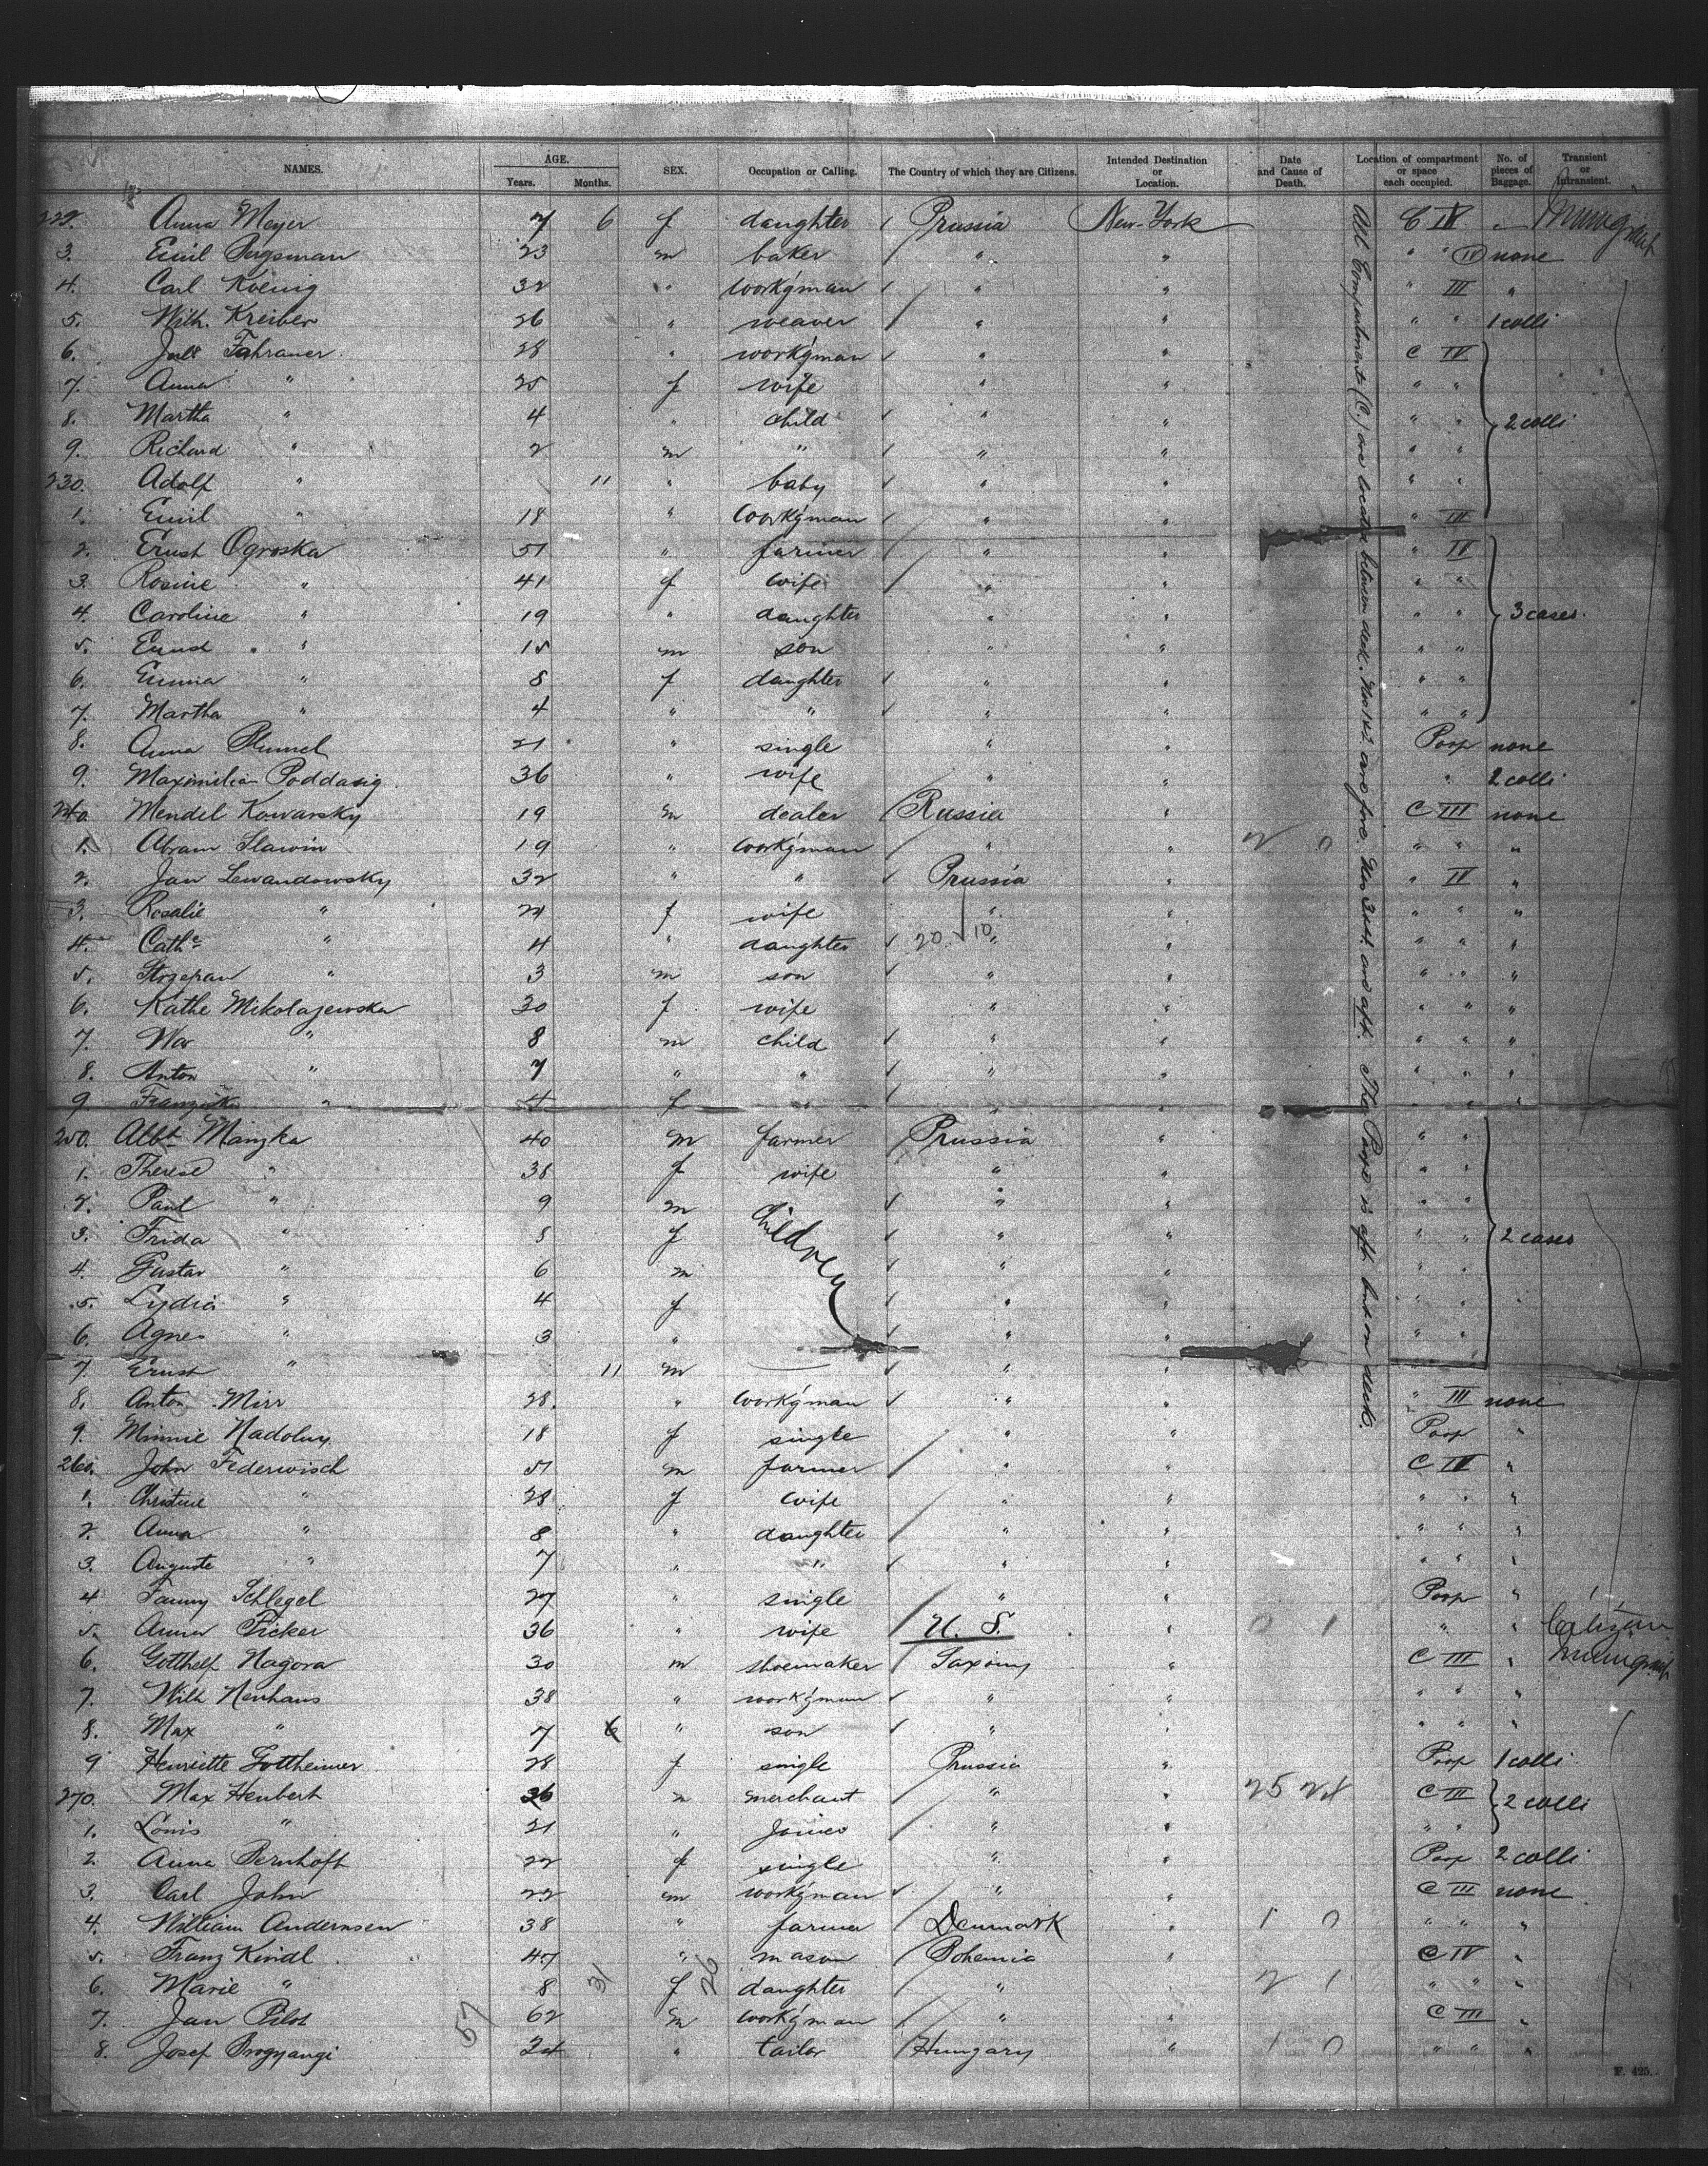 NAMES. AGE. Years. Months. SEX. Occupation or Calling. The Country of which they are Citizens. Intended Destination or Location. Date and Cause of Death. Location of compartment or space each occupied. No. of pieces of Baggage. Transient or Intransient.
222. Anna Meyer 7 6 f daughter Prussia New-York C IV " Immigrant
3. Emil Bergsman 23 m baker " " " IV none
4. Carl Koenig 32 " workg'man " " " III "
5. Wilh. Kreiber 26 " weaver " " " " 1 colli
6. Juls Fahrauer 28 " workg'man " " C IV
7. Anna " 25 f wife " " " "
8. Martha " 4 " child " " " " 2 colli
9. Richard " 2 m " " " " "
230. Adolf " 11 " baby " " " "
1. Emil " 18 " workg'man " " " III
2. Ernst Ogroska 51 " farmer " " " IV
3. Rosine " 41 f wife " " " "
4. Caroline " 19 " daughter " " " " 3 cases
5. Ernst " 15 m son " " " "
6. Emma " 8 f daughter " " " "
7. Martha " 4 " " " " " "
8. Anna Plumel 21 " single " " Poop none
9. Maximilia Poddasig 36 " wife " " " 2 colli
240. Mendel Kowarsky 19 m dealer Russia " C III none
1. Abram Slawin 19 " workg'man " " 2 0 " " "
2. Jan Lewandowsky 32 " " Prussia " " IV "
3. Rosalie " 24 f wife " " " " "
4. Cathe " 4 " daughter 20 10 " " " " "
5. Stozepan " 3 m son " " " " "
6. Kathe Mikolajewska 30 f wife " " " " "
7. Wor " 8 m child " " " " "
8. Anton " 7 " " " " " " "
9. Franziska " 4 f " " " " " "
250. Albt Manzka 40 m farmer Prussia " " "
1. Therese " 38 f wife " " " "
2. Paul " 9 m Children " " " "
3. Frida " 8 f " " " " 2 cases
4. Gustav " 6 m " " " "
5. Lydia " 4 f " " " "
6. Agnes " 3 " " " " "
7. Ernst " 11 m " "
8. Anton Mirr 28 " workg'man " " " III none
9. Minnie Nadolny 18 f single " " Poop "
260. John Federwisch 51 m farmer " " C IV "
1. Christine " 28 f wife " " " " "
2. Anna " 8 " daughter " " " " "
3. Auguste " 7 " " " " " " "
4 Fanny Schlegel 27 " single " " Poop "
5. Anna Ficker 36 " wife U. S. " 0 1 " " Citizen
6. Gotthelf Nagora 30 m shoemaker Saxony " C III " Immigrant
7. Wilh Neuhaus 38 " workg'man " " " " "
8. Max " 7 6 " son " " " " "
9 Henriette Gottheimer 28 f single Prussia " Poop 1 colli
270. Max Heubert 36 m merchant " " 25 24 C III 2 colli
1. Louis " 21 " Joiner " " " "
2. Anna Bernhoft 22 f single " " Poop 2 colli
3. Carl John 22 m workg'man " " C III none
4. William Andernsen 38 " farmer Denmark " 1 0 " " "
5. Franz Kindl 47 " mason Bohemia " C IV "
6. Marie " 8 31 f 26 daughter " 2 1 " " "
7. Jan Pilos 57 62 m workg'man " C III "
8. Josef Brogyangi 24 " tailor Hungary " 1 0 " " "
All Compartments (C.) are located between deck. Nos 1 & 2 are fore. Nos 3 & 4 are aft. The Poop is aft but on deck.
F. 425.